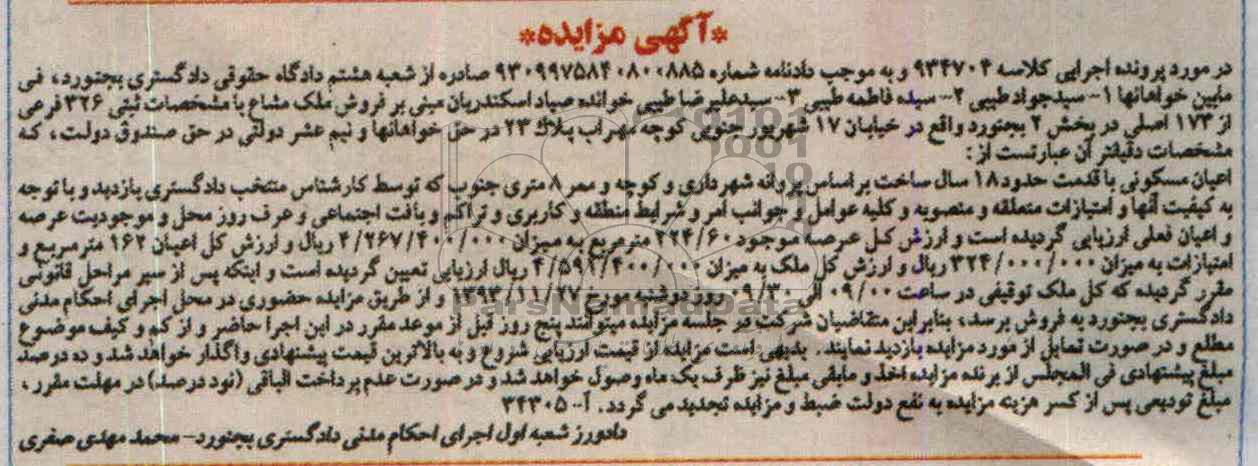 *آگهی مزایده*
در مورد پرونده اجرایی کلاسه ۹۳۴۷۰۴ و به موجب دادنامه شماره ۹۳۰۹۹۷۵۸۴۰۸۰۰۸۸۵ صادره از شعبه هشتم دادگاه حقوقی دادگستری بجنورد، فی
مابین خواهانها ۱- سیدجواد طیبی ۲- سیده فاطمه طیبی ۳- سیدعلیرضا طیبی خوانده صیاد اسکندریان مبنی بر فروش ملک مشاع با مشخصات ثبتی ۳۲۶ فرعی
از ۱۷۳ اصلی در بخش ۲ بجنورد واقع در خیابان ۱۷ شهریور جنوبی کوچه مهراب پلاک ۲۳ در حق خواهانها و نیم عشر دولتی در حق صندوق دولت، که
مشخصات دقیقتر آن عبارتست از:
اعیان مسکونی با قدمت حدود ۱۸ سال ساخت بر اساس پروانه شهرداری و کوچه و ممر ۸ متری جنوب که توسط کارشناس منتخب دادگستری بازدید و با توجه
به کیفیت آنها و امتیازات متعلقه و منصوبه و کلیه عوامل و جوانب امر و شرایط منطقه و کاربری و تراکم و بافت اجتماعی و عرف روز محل و موجودیت عرصه
و اعیان فعلی ارزیابی گردیده است و ارزش کل عرصه موجود ۲۲۴/۶۰ مترمربع به میزان ۴/۲۶۷/۴۰۰/۰۰۰ ریال و ارزش کل اعیان ۱۶۲ مترمربع و
امتیازات به میزان ۳۲۴/۰۰۰/۰۰۰ ریال و ارزش کل ملک به میزان ۴/۵۹۱/۴۰۰/۰۰۰ ریال ارزیابی تعیین گردیده است و اینکه پس از سیر مراحل قانونی
مقرر گردیده که کل ملک توقیفی در ساعت ۰۹/۰۰ الی ۰۹/۳۰ روز دوشنبه مورخ ۱۳۹۳/۱۱/۲۷ و از طریق مزایده حضوری در محل اجرای احکام مدنی
دادگستری بجنورد به فروش برسد، بنابراین متقاضیان شرکت در جلسه مزایده میتوانند پنج روز قبل از موعد مقرر در این اجرا حاضر و از کم و کیف موضوع
مطلع و در صورت تمایل از مورد مزایده بازدید نمایند. بدیهی است مزایده از قیمت ارزیابی شروع و به بالاترین قیمت پیشنهادی واگذار خواهد شد و ده درصد
مبلغ پیشنهادی فی المجلس از برنده مزایده اخذ و مابقی مبلغ نیز ظرف یک ماه وصول خواهد شد و در صورت عدم پرداخت الباقی (نود درصد) در مهلت مقرر،
مبلغ تودیعی پس از کسر هزینه مزایده به نفع دولت ضبط و مزایده تجدید می گردد. آ- ۳۴۳۰۵
دادورز شعبه اول اجرای احکام مدنی دادگستری بجنورد- محمد مهدی صفری
ParsNamadData